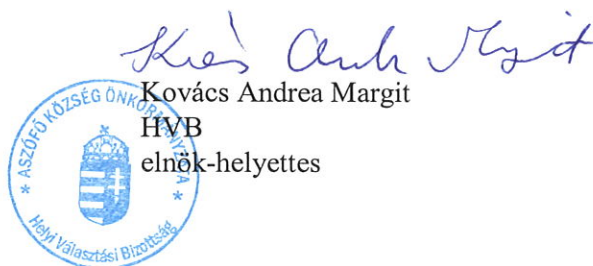 Kovács Andrea Margit
HVB
elnök-helyettes
* ASZÓFŐ KÖZSÉG ÖNKORMÁNYZATA *
Helyi Választási Bizottság